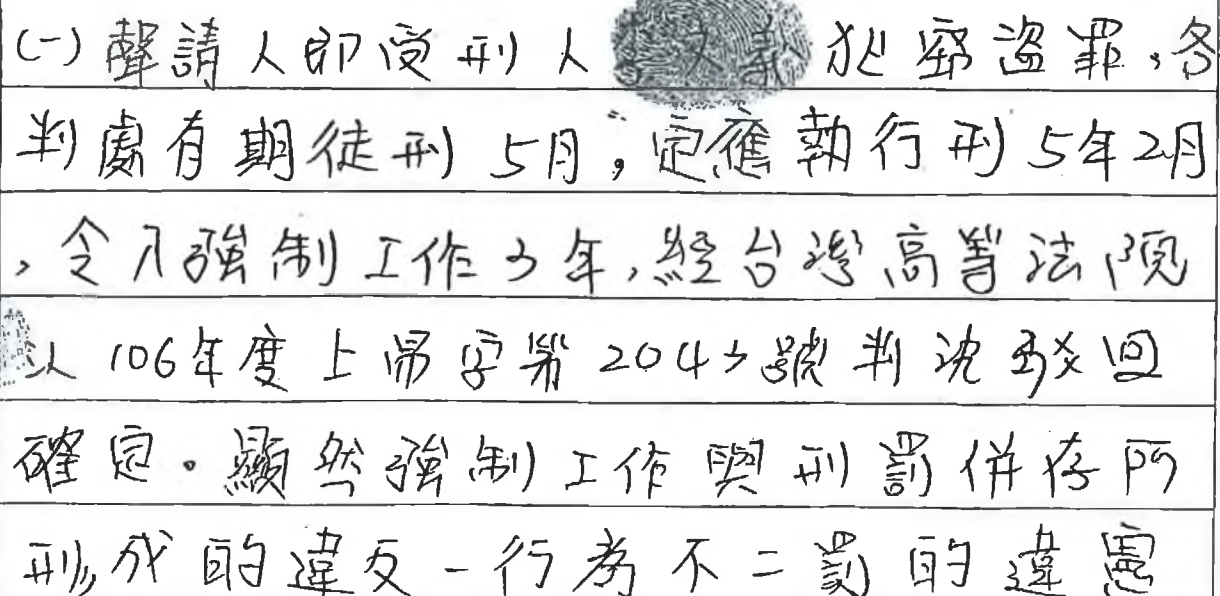 (一)聲請人即受刑人 犯竊盜罪,各
判處有期徒刑5月,定應執行刑5年2月
,令入強制工作3年,經台灣高等法院
以106年度上易字第2043號判決駁回
確定。顯然強制工作與刑罰併存所
形成的違反一行為不二罰的違憲